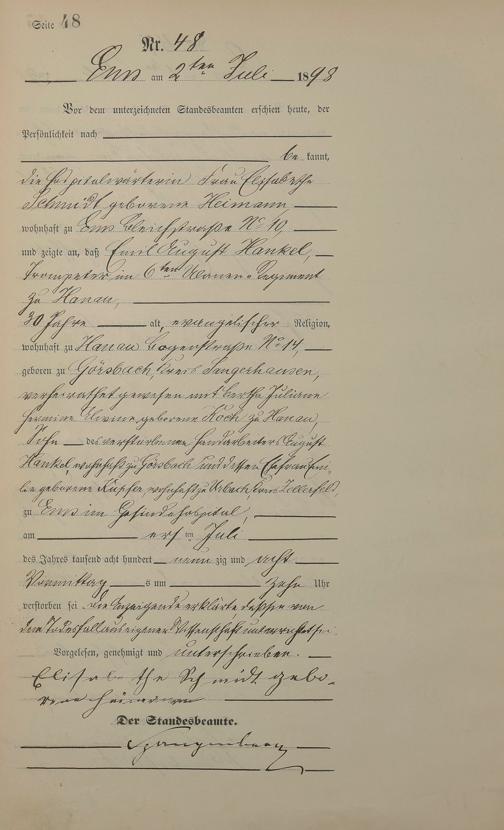 Seite 48
Nr. 48
Ems am 2ten Juli 1898
Vor dem unterzeichneten Standesbeamten erschien heute, der
Persönlichkeit nach
be kannt,
die Hospitalwärterin Frau Elisabethe
Schmidt geborene Heimann
wohnhaft zu Ems Bleichstraße No 10,
und zeigte an, daß Emil August Hankel,
Trompeter im 6ten Ulanen-Regiment
zu Hanau,
30 Jahre alt, evangelischer Religion,
wohnhaft zu Hanau No 14,
geboren zu Görsbach, Kreis Sangerhausen,
verheirathet gewesen mit Bertha Juliane
Hermine geborene Koch zu Hanau,
Sohn des verstorbenen Handarbeiters August
Hankel, wohnhaft zu Görsbach und dessen Ehefrau
geborene wohnhaft zu Urbach Kreis
zu Ems im Gesindehospital,
am ersten Juli
des Jahres tausend acht hundert neun zig und acht
Vormittag s um zehn Uhr
verstorben sei. Die Anzeigende erklärte daß sie von
dem Todesfall aus eigener Wissenschaft unterrichtet sei.
Vorgelesen, genehmigt und unterschrieben.
Elisabethe Schmidt gebo-
rene Heimann
Der Standesbeamte.
Spangenberg